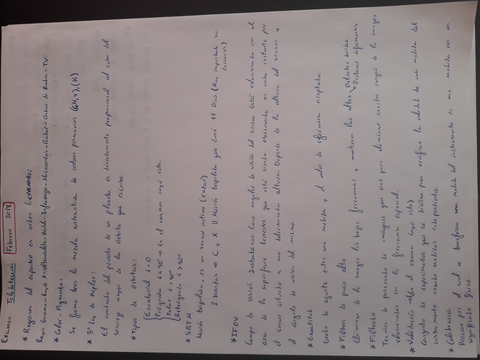 Examen Teledetección Febrero 2018
* Regiones del espectro en orden creciente:
Rayos Gamma - Rayos X - Ultravioleta - Visible - Infrarrojo - Microondas - Radar - Ondas de Radio - TV
* Color-Pigmento:
Se forma con la mezcla sustractiva de colores primarios (C,M,Y),(K)
* 3ª Ley de Kepler:
El cuadrado del periodo de un planeta es directamente proporcional al cubo del
semieje mayor de la órbita que describe.
* Tipos de órbitas:
Ecuatorial i=0
* SRTM
Misión topográfica, es un sensor activo (radar)
2 bandas → C y X || Misión topográfica que duró 11 Días.
* IFOV
Campo de Visión Instantáneo: Cono angular de visión del sensor. Está relacionado con el
área de la superficie terrestre que está siendo observada en cada instante por
el sensor situado a una determinada altura. Depende de la altura del sensor y
el ángulo de visión del mismo.
* Exactitud
Grado de ajuste entre una medida y el valor de referencia aceptado.
* Filtros de paso alto
Eliminar de la imagen las bajas frecuencias y mantener las altas
* Filtrado
Técnica de procesado de imágenes que para eliminar ciertos rasgos de la imagen
relacionados con la frecuencia espacial.
* Validación
Conjunto de experimentos que se realizan para verificar la validez de una medida del
instrumento usando medidas independientes.
* Calibración
Proceso por el cual se transforma una medida del instrumento en una medida con un
significado físico.